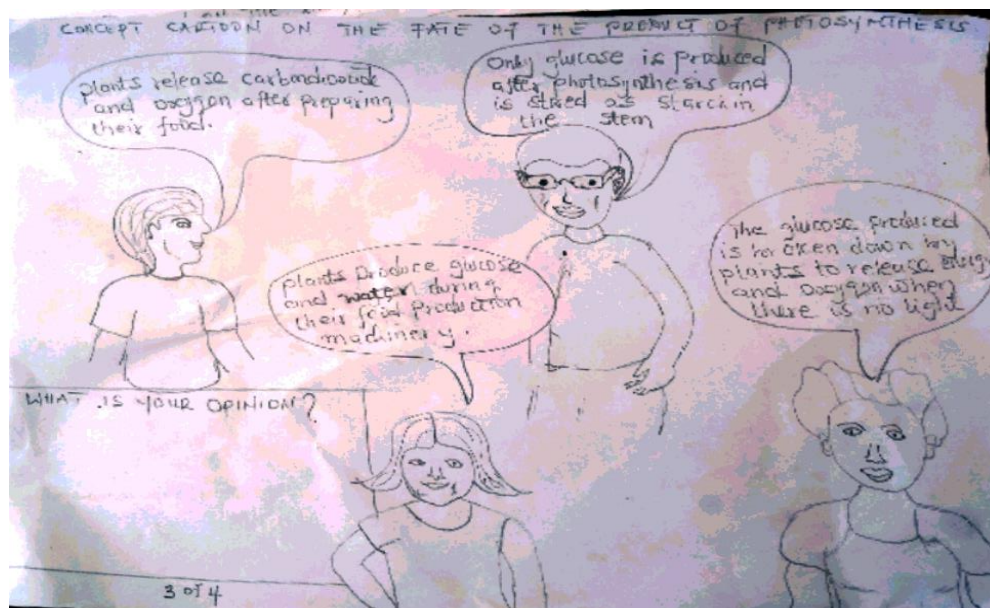 CONCEPT CARTOON ON THE FATE OF THE PRODUCT OF PHOTOSYNTHESIS
Plants release carbondioxide
and oxygen after preparing
their food.
Only glucose is produced
after photosynthesis and
is stored as starch in
the stem
Plants produce glucose
and water during
their food production
machinery.
The glucose produced
is broken down by
plants to release
and oxygen when
there is no light
WHAT IS YOUR OPINION?
3 of 4